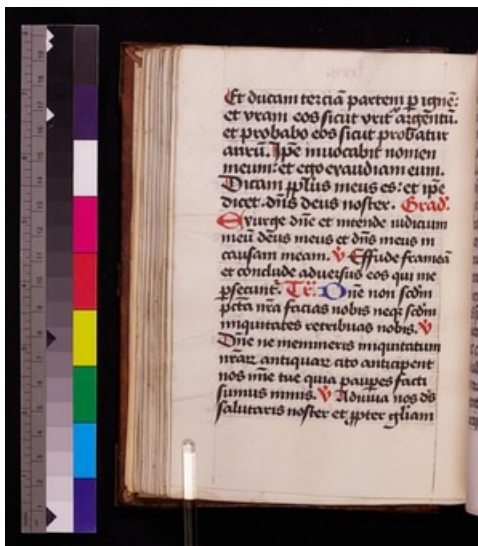 Et ducam terciā partem p ignē:
et vram eos sicut vrit᷑ argentū.
et probabo eos sicut probatur
aurū. Ipē inuocabit nomen
meum: et ego exaudiam eum.
Dicam pp̄lus meus es: et ipē
dicet. dn̄s deus noster. Grad᷑.
Exurge dn̄e et intende iudicium
meū deus meus et dn̄s meus in
causam meam. V̄ Effude frameā
et conclude aduersus eos qui me
psecunt᷑. Tr̄. Dn̄e non scdm̄
pctā nrā facias nobis neqꝫ scdm̄
iniquitates retribuas nobis. V̄
Dn̄e ne memineris iniquitatum
nrāꝝ antiquaꝝ cito anticipent
nos mīe tue quia paupes facti
sumus nimis. V̄ Adiuua nos ds̄
salutaris noster et ꝓpter gliam